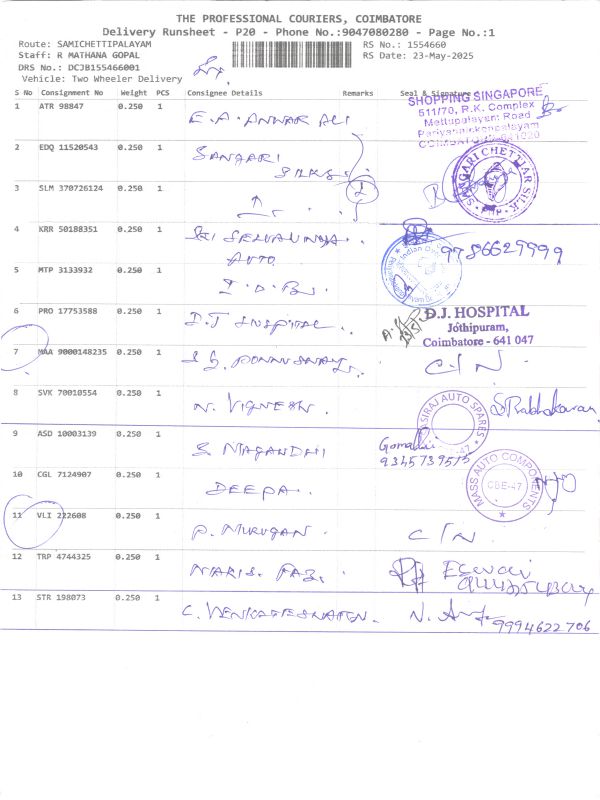 THE PROFESSIONAL COURIERS, COIMBATORE
Delivery Runsheet - P20 - Phone No.:9047080280 - Page No.:1
Route: SAMICHETTIPALAYAM RS No.: 1554660
Staff: R MATHANA GOPAL RS Date: 23-May-2025
DRS No.: DCJB155466001
Vehicle: Two Wheeler Delivery
S No Consignment No Weight PCS Consignee Details Remarks Seal & Signature
1 ATR 98847 0.250 1 E.A. ANWAR ALI
SHOPPING SINGAPORE
511/70, R.K. Complex
Mettupalayam Road
2 EDQ 11520543 0.250 1 SANGARI
SILKS
SANGARI CHETTIAR SILK
3 SLM 370726124 0.250 1
4 KRR 50188351 0.250 1 SRI SELVAVINAYA
AUTO 9786629999
5 MTP 3133932 0.250 1
6 PRO 17753588 0.250 1 D.J HOSPITAL
D.J. HOSPITAL
Jothipuram,
Coimbatore - 641 047
7 MAA 9000148235 0.250 1 C/N
8 SVK 70010554 0.250 1 N. VIGNESH S Prabhakaran
SIRAJ AUTO SPARES
9 ASD 10003139 0.250 1 S MAGANDHI
10 CGL 7124907 0.250 1 DEEPA
MASS AUTO COMPONENTS
CBE-47
11 VLI 222608 0.250 1 P. MURUGAN C/N
12 TRP 4744325 0.250 1
13 STR 198073 0.250 1 9994622706